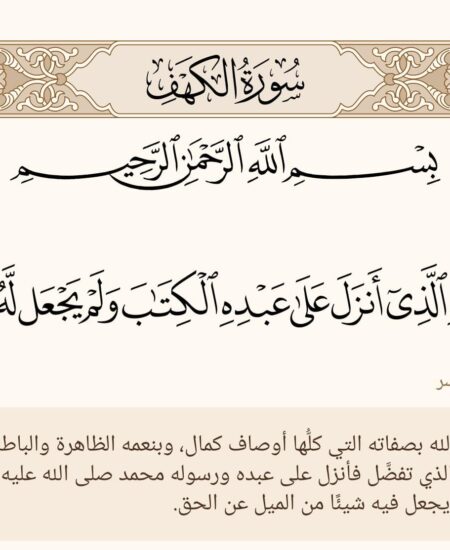 سُورَةُ الْكَهْفِ
بِسْمِ ٱللَّهِ ٱلرَّحْمَٰنِ ٱلرَّحِيمِ
ٱلَّذِىٓ أَنزَلَ عَلَىٰ عَبْدِهِ ٱلْكِتَٰبَ وَلَمْ يَجْعَل لَّهُ
لله بصفاته التي كلُّها أوصاف كمال، وبنعمه الظاهرة والباط
لذي تفضَّل فأنزل على عبده ورسوله محمد صلى الله عليه
يجعل فيه شيئًا من الميل عن الحق.